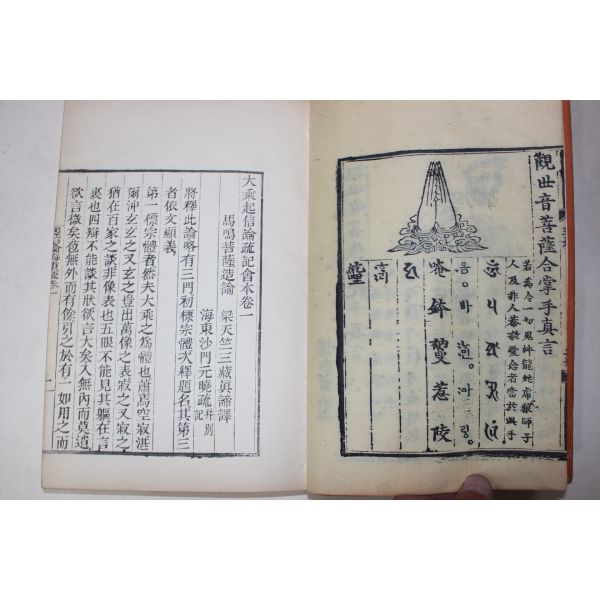 觀世音菩薩合掌手真言
若為令一切鬼神龍蛇虎狼師子
人及非人恭敬愛念者當於此手
옴。바 。아 링。
唵 鉢
惹 陵
大乘起信論疏記會本卷一
馬鳴菩薩造論 梁天竺三藏眞諦譯
海東沙門元曉疏 幷別記
將釋此論略有三門初標宗體次釋題名其第三
者依文顯義
第一標宗體者然夫大乘之為體也蕭焉空寂湛
爾沖玄玄之又玄之豈出萬像之表寂之又寂之
猶在百家之談非像表也五眼不能見其軀在言
裏也四辯不能談其狀欲言大矣入無內而莫遺
欲言微矣苞無外而有餘引之於有一如用之而